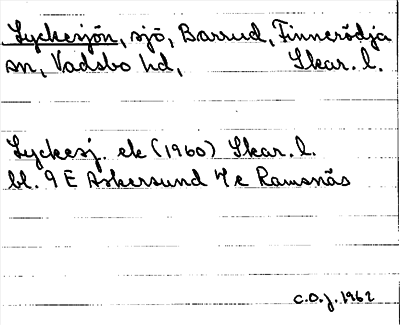 Lyckesjön, sjö, Barrud, Finnerödja
sn, Vadsbo hd, Skar. l.
Lyckesj. ek (1960) Skar. l.
bl. 9 E Askersund 7 e Ramsnäs
C.O.J. 1962